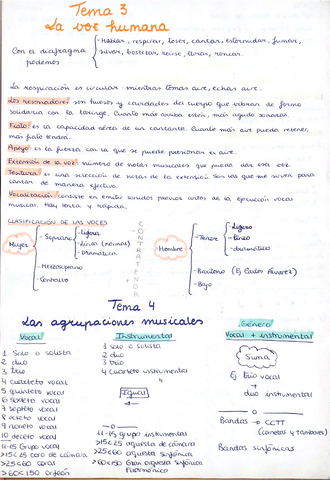 Tema 3
La voz humana
Con el diafragma podemos
- Hablar, respirar, toser, cantar, estornudar, fumar,
silvar, bostezar, reirse, llorar, roncar.
La respiración es circular: mientras tomas aire, echas aire.
Los resonadores: son huesos y cavidades del cuerpo que vibran de forma
solidaria con la laringe. Cuanto más arriba estén, más agudo sonarán.
Fiato: es la capacidad aérea de un cantante. Cuanto más aire pueda retener,
más fiato tendrá.
Apoyo: es la fuerza con la que se puede presionar el aire.
Extensión de la voz: número de notas musicales que pueda dar esa voz.
Tesitura: es una selección de notas de la extensión. Son las que me sirven para
cantar de manera efectiva.
Vocalización: consiste en emitir sonidos previos antes de la ejecución vocal
musical. Hay lenta y rápida.
CLASIFICACIÓN DE LAS VOCES
Mujer
- Soprano
- Ligera
- Lírica (normal)
- Dramática
- Mezzosoprano
- Contralto
CONTRATENOR
Hombre
- Tenor
- Ligero
- Lírico
- dramático
- Barítono (Ej Carlos Álvarez)
- Bajo
Tema 4
Las agrupaciones musicales
Vocal
1 Solo o solista
2 duo
3 trio
4 cuarteto vocal
5 quinteto vocal
6 sexteto vocal
7 septeto vocal
8 octeto vocal
9 noneto vocal
10 deceto vocal
11-15 Grupo vocal
>15<25 coro de cámara
>25<60 coral
>60<150 orfeón
Instrumental
1 solo o solista
2 duo
3 trio
4 cuarteto instrumental
Igual
11-15 grupo instrumental
>15<25 orquesta de cámara
>25<60 orquesta sinfónica
>60<150 Gran orquesta sinfónica
Filarmónica
Género
Vocal + instrumental
Suma
Ej trio vocal
+
duo instrumental
Bandas → CCTT
(cornetas y tambores)
Bandas sinfónicas